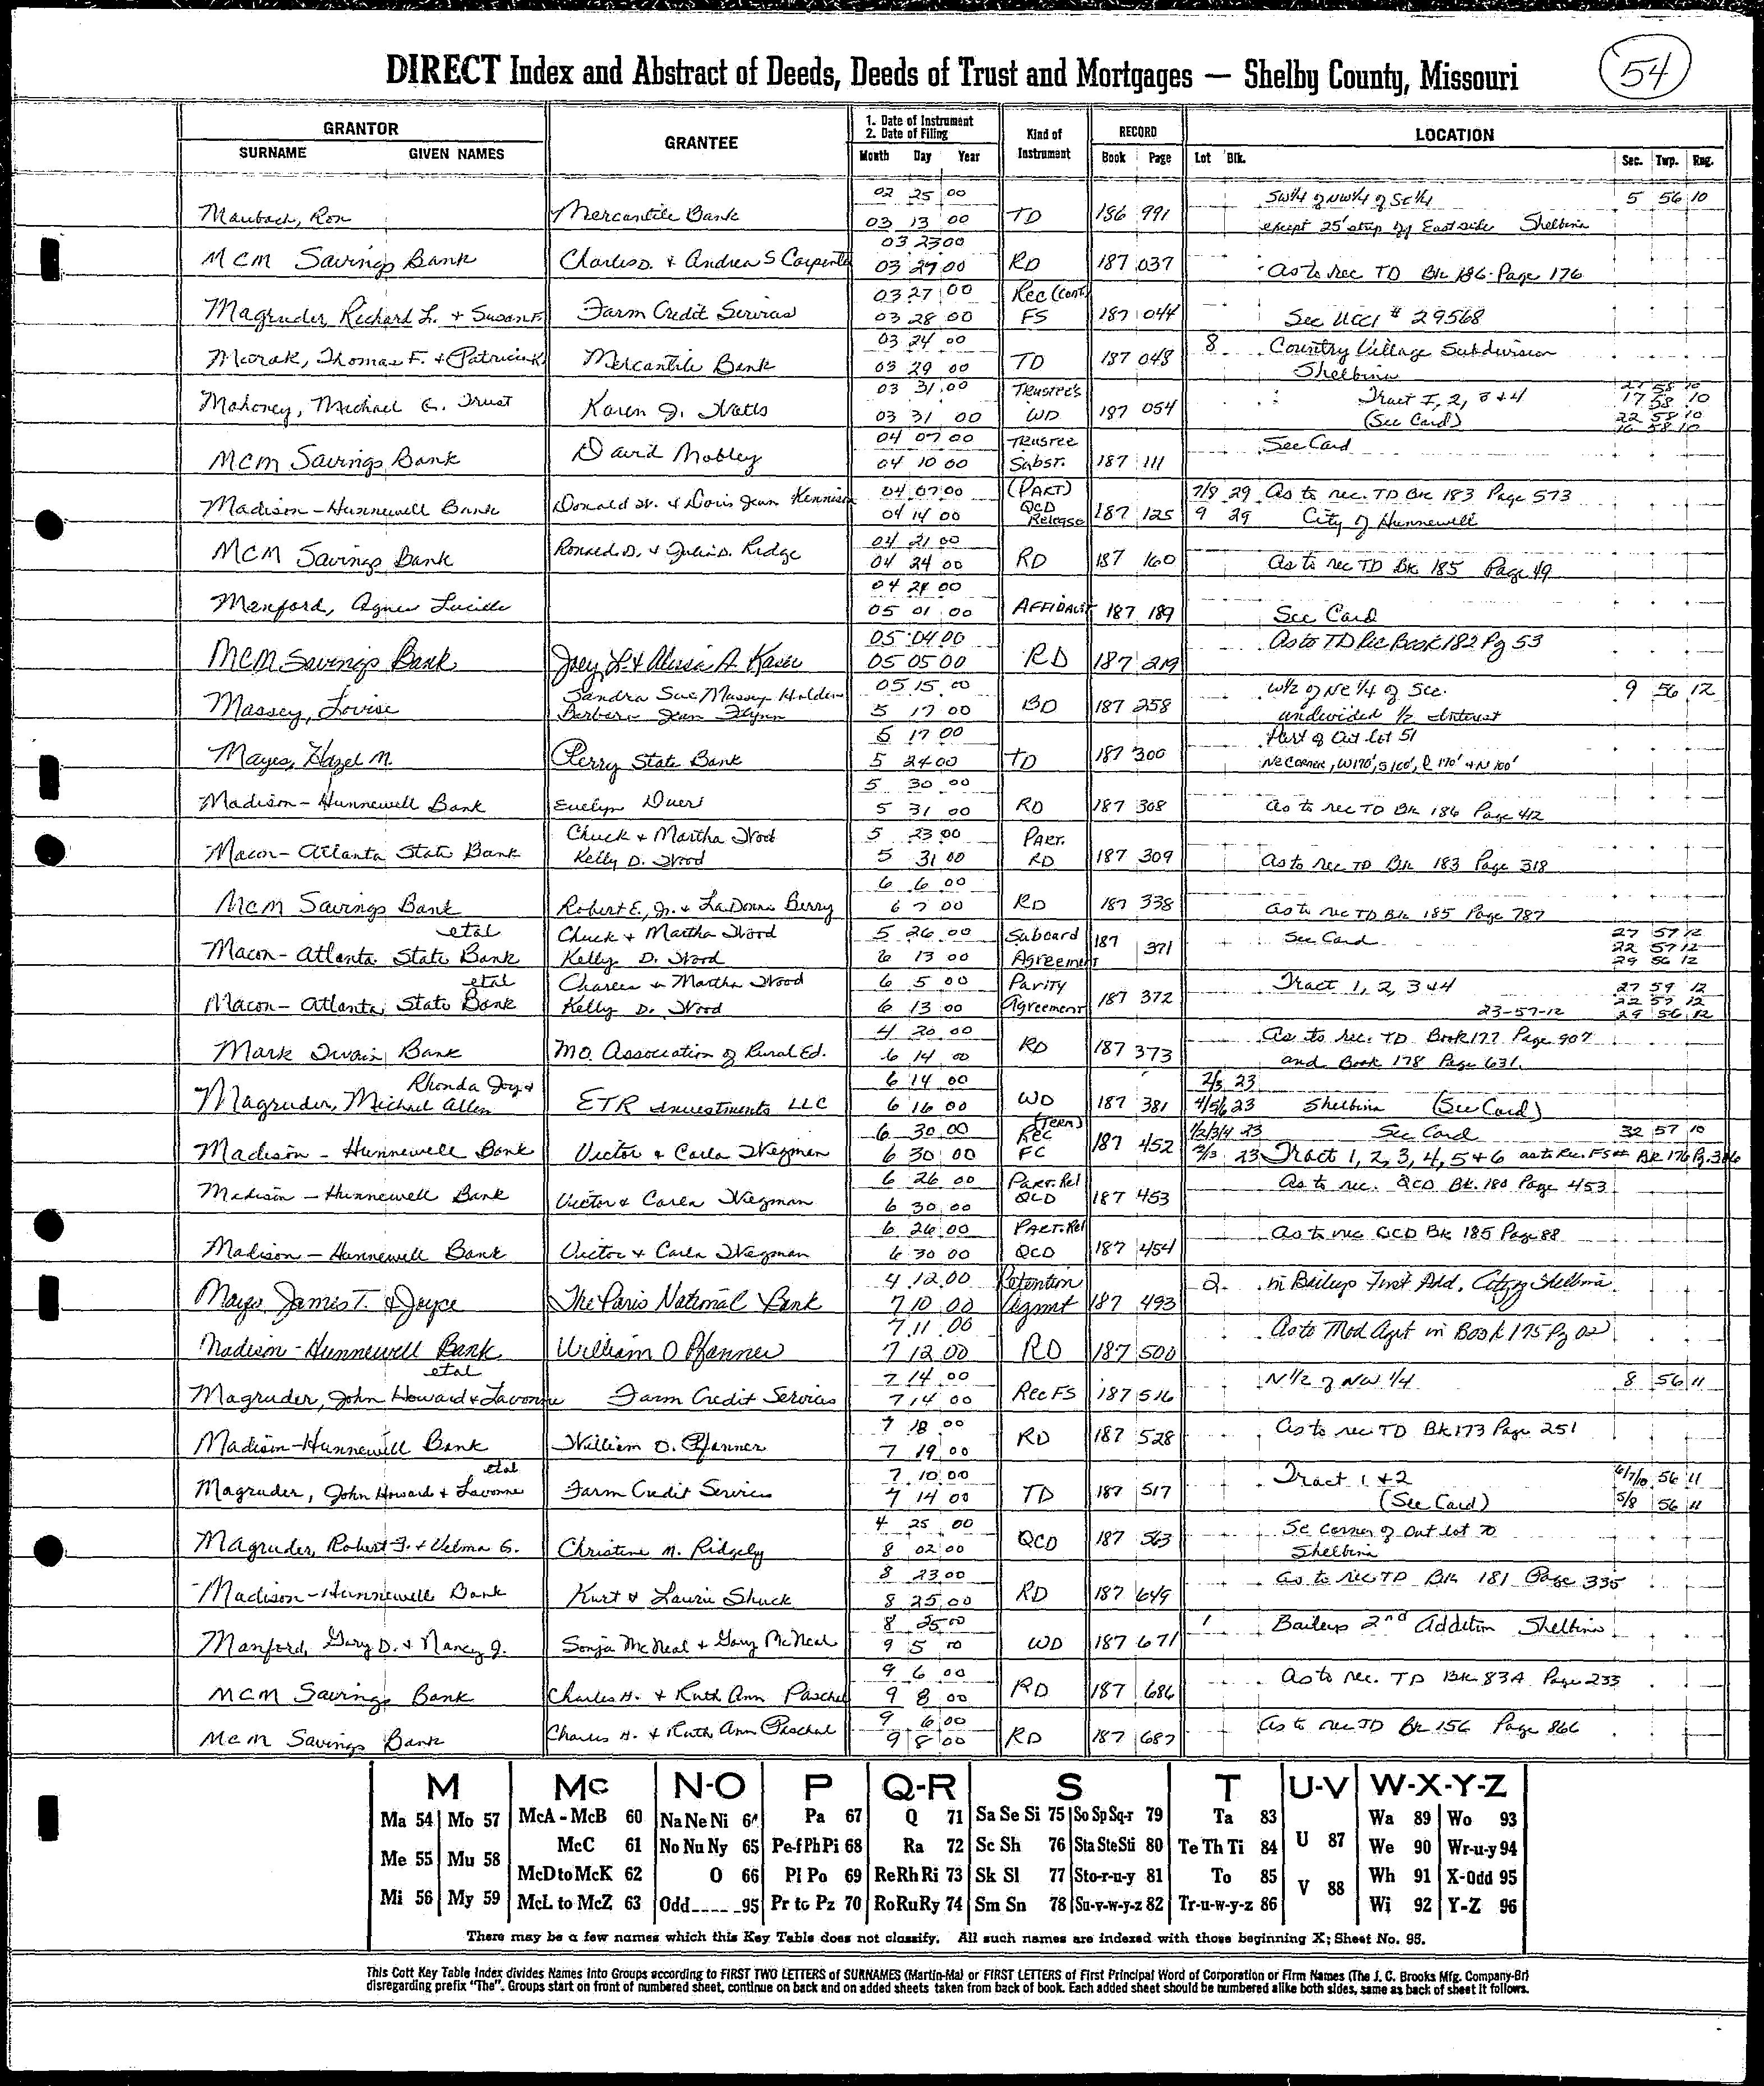 DIRECT Index and Abstract of Deeds, Deeds of Trust and Mortgages — Shelby County, Missouri 54
GRANTOR GRANTEE 1. Date of Instrument 2. Date of Filing Kind of Instrument RECORD LOCATION
SURNAME GIVEN NAMES Month Day Year Book Page Lot Blk. Sec. Twp. Rng.
02 25 00 SW1/4 of NW1/4 of SE1/4 5 56 10
Maubach, Ron Mercantile Bank 03 13 00 TD 186 991 except 25' strip by East side Shelbina
03 23 00
MCM Savings Bank Charles D. & Andrea S Carpenter 03 27 00 RD 187 037 As to rec TD Bk 186 Page 176
03 27 00 Rec (Cont)
Magruder, Richard L. & Susan F. Farm Credit Services 03 28 00 FS 187 044 See UCC1 # 29568
03 24 00 8 Country Village Subdivision
Thomas F. & Patricia K Mercantile Bank 03 29 00 TD 187 048 Shelbina
03 31 00 Trustee's Tract 1, 2, 3 & 4 27 58 10
17 58 10
Mahoney, Michael G. Trust Karen J. Watts 03 31 00 WD 187 054 (See Card) 22 58 10
16 58 10
04 07 00 Trustee See Card
MCM Savings Bank David Mobley 04 10 00 Subst. 187 111
04 07 00 (PART) 7/8 29 As to rec. TD Bk 183 Page 573
Madison-Hunnewell Bank Donald W. & Doris Jean Kennison 04 14 00 QCD Release 187 125 9 29 City of Hunnewell
04 21 00
MCM Savings Bank Ronald D. & Julia D. Ridge 04 24 00 RD 187 160 As to rec TD Bk 185 Page 49
04 28 00
Manford, Agnes Lucille 05 01 00 AFFIDAVIT 187 189 See Card
05 04 00 As to TD Rec Book 182 Pg 53
MCM Savings Bank Joey L. & Alissa A. 05 05 00 RD 187 219
Sandra Sue Massey Holden 05 15 00 W1/2 of NE 1/4 of Sec. 9 56 12
Massey, Lovise Barbara Jean Flynn 5 17 00 BD 187 258 undivided 1/2 Interest
5 17 00 Part of Out lot 51
Mayes, Hazel M. Perry State Bank 5 24 00 TD 187 300 NE Corner, W170', S100', E 170' & N 100'
5 30 00
Madison-Hunnewell Bank Evelyn Duer 5 31 00 RD 187 308 As to rec TD Bk 186 Page 412
Chuck & Martha Wood 5 23 00 PART.
Macon-Atlanta State Bank Kelly D. Wood 5 31 00 RD 187 309 As to rec TD Bk 183 Page 318
6 6 00
MCM Savings Bank Robert E., Jr. & LaDonna Berry 6 7 00 RD 187 338 As to rec TD Bk 185 Page 787
etal Chuck & Martha Wood 5 26 00 Suboard See Card 27 57 12
22 57 12
Macon-Atlanta State Bank Kelly D. Wood 6 13 00 Agreement 187 371 29 56 12
etal Charles & Martha Wood 6 5 00 Parity Tract 1, 2, 3 & 4 27 59 12
22 57 12
Macon-Atlanta State Bank Kelly D. Wood 6 13 00 Agreement 187 372 23-57-12 29 56 12
4 20 00 As to rec. TD Book 177 Page 907
Mark Twain Bank MO. Association of Rural Ed. 6 14 00 RD 187 373 and Book 178 Page 631.
Rhonda Joy & 6 14 00 2/3 23
Magruder, Michael Allen ETR Investments LLC 6 16 00 WD 187 381 4/5/6 23 Shelbina (See Card)
6 30 00 (Term) Rec 1/2/3/4 23 See Card 32 57 10
Madison-Hunnewell Bank Victor & Carla Wegman 6 30 00 FC 187 452 2/3 23 Tract 1, 2, 3, 4, 5 & 6 as to Rec. FS# Bk 176 Pg. 386
6 26 00 Part. Rel As to rec. QCD Bk. 180 Page 453
Madison-Hunnewell Bank Victor & Carla Wegman 6 30 00 QCD 187 453
6 26 00 PART. Rel As to rec QCD Bk 185 Page 88
Madison-Hunnewell Bank Victor & Carla Wegman 6 30 00 QCD 187 454
4 12 00 Retention 2 in Baileys First Add, City of Shelbina
Mayes James T. & Joyce The Paris National Bank 7 10 00 Agmnt 187 493
7 11 00 As to Mod Agrt in Book 175 Pg 02
Madison-Hunnewell Bank William O Pfanner 7 12 00 RD 187 500
etal 7 14 00 N 1/2 of NW 1/4 8 56 11
Magruder, John Howard & Lavonne Farm Credit Services 7 14 00 Rec FS 187 516
7 18 00 As to rec TD Bk 173 Page 251
Madison-Hunnewell Bank William O. Pfanner 7 19 00 RD 187 528
etal 7 10 00 Tract 1 & 2 6/7/10 56 11
Magruder, John Howard & Lavonne Farm Credit Services 7 14 00 TD 187 517 (See Card) 5/8 56 11
4 25 00 SE Corner of Out Lot 70
Magruder, Robert F. & Velma G. Christine M. Ridgely 8 02 00 QCD 187 563 Shelbina
8 23 00 As to rec TD Bk 181 Page 335
Madison-Hunnewell Bank Kurt & Laurie Shuck 8 25 00 RD 187 649
8 25 00 1 Baileys 2nd Addition Shelbina
Manford, Gary D. & Nancy J. Sonja McNeal & Gary McNeal 9 5 00 WD 187 671
9 6 00 As to rec. TD Bk 83A Page 233
MCM Savings Bank Charles H. & Ruth Ann Paschal 9 8 00 RD 187 686
9 6 00 As to rec TD Bk 156 Page 866
MCM Savings Bank Charles H. & Ruth Ann Paschal 9 8 00 RD 187 687
M Mc N-O P Q-R S T U-V W-X-Y-Z
Ma 54 Mo 57 McA - McB 60 Na Ne Ni 64 Pa 67 Q 71 Sa Se Si 75 So Sp Sq-r 79 Ta 83 Wa 89 Wo 93
McC 61 No Nu Ny 65 Pe-f Ph Pi 68 Ra 72 Sc Sh 76 Sta Ste Sti 80 Te Th Ti 84 U 87 We 90 Wr-u-y 94
Me 55 Mu 58 McD to McK 62 O 66 Pl Po 69 Re Rh Ri 73 Sk Sl 77 Sto-r-u-y 81 To 85 V 88 Wh 91 X-Odd 95
Mi 56 My 59 McL to McZ 63 Odd 95 Pr to Pz 70 Ro Ru Ry 74 Sm Sn 78 Su-v-w-y-z 82 Tr-u-w-y-z 86 Wi 92 Y-Z 96
There may be a few names which this Key Table does not classify. All such names are indexed with those beginning X; Sheet No. 95.
This Cott Key Table Index divides Names into Groups according to FIRST TWO LETTERS of SURNAMES (Martin-Ma) or FIRST LETTERS of First Principal Word of Corporation or Firm Names (The J. C. Brooks Mfg. Company-Br)
disregarding prefix "The". Groups start on front of numbered sheet, continue on back and on added sheets taken from back of book. Each added sheet should be numbered alike both sides, same as back of sheet it follows.